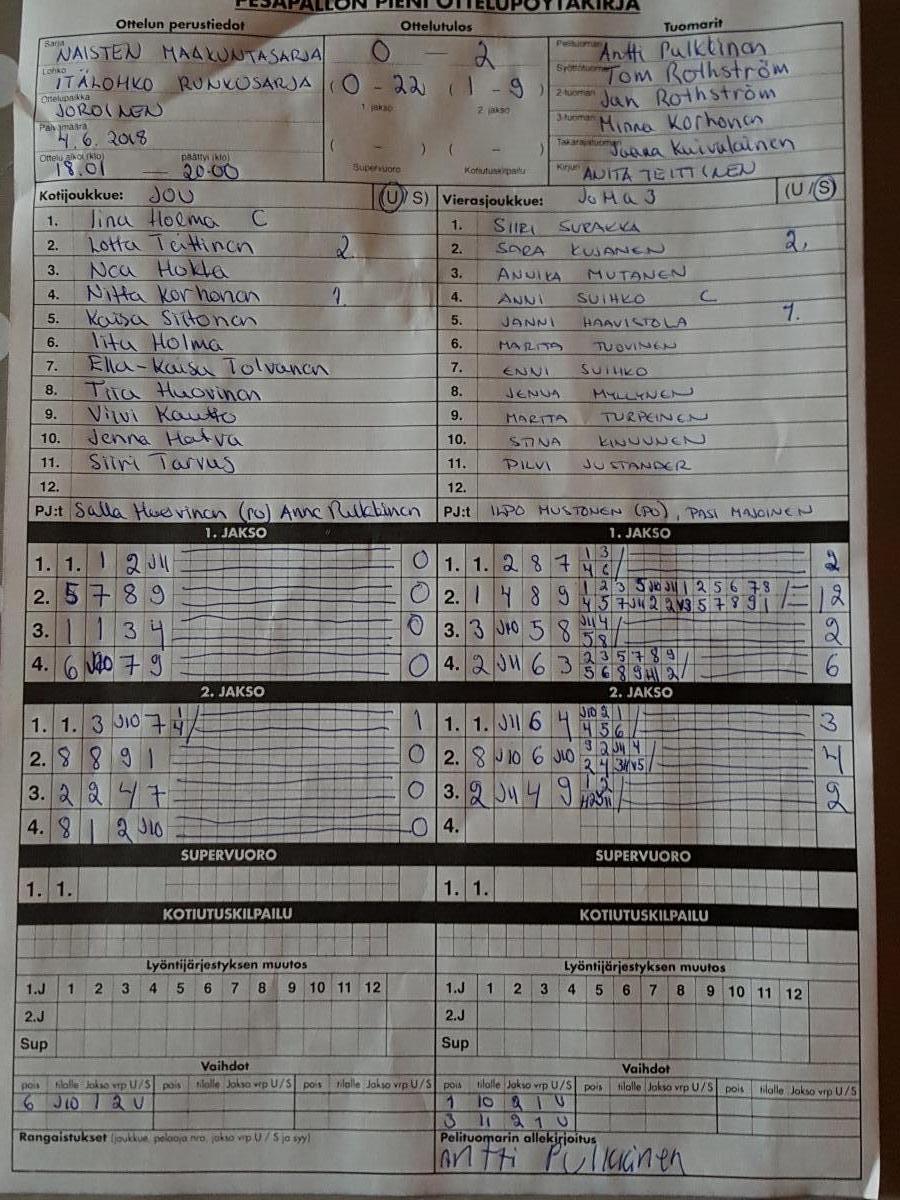 PESÄPALLON PIENI OTTELUPÖYTÄKIRJA
Ottelun perustiedot Ottelutulos Tuomarit
Sarja NAISTEN MAAKUNTASARJA
Lohko ITÄLOHKO RUNKOSARJA
Ottelupaikka JOROINEN
Päivämäärä 4.6. 2018
Ottelu alkoi (klo) 18.01 — päättyi (klo) 20.00
0 — 2
(0 - 22) (1 - 9)
1. jakso 2. jakso
( - ) ( - )
Supervuoro Kotiutuskilpailu
Pelituomari Antti Pulkkinen
Syöttötuomari Tom Rothström
2-tuomari Jan Rothström
3-tuomari Minna Korhonen
Takarajatuomari Jaana Kuivalainen
Kirjuri ANITA TEITTINEN
Kotijoukkue: JOU (U/S)
1. Iina Holma C
2. Lotta Teittinen 2.
3. Nea Hokka
4. Niitta Korhonen 1.
5. Kaisa Siitonen
6. Iita Holma
7. Ella-Kaisa Tolvanen
8. Tiia Huovinen
9. Vilvi Kautto
10. Jenna Hatva
11. Siiri Tarvus
12.
PJ:t Salla Huovinen (PO) Anne Pulkkinen
Vierasjoukkue: JoMa 3 (U/S)
1. SIIRI SURAKKA
2. SARA KUJANEN 2.
3. ANNIKA MUTANEN
4. ANNI SUIHKO C
5. JANNI HAAVISTOLA 1.
6. MARITA TUOVINEN
7. ENNI SUIHKO
8. JENNA MYLLYNEN
9. MARITA TURPEINEN
10. STINA KINNUNEN
11. PILVI JUSTANDER
12.
PJ:t ILPO MUSTONEN (PO), PASI MAJOINEN
1. JAKSO
1. 1. 1 2 J11 0
2. 5 7 8 9 0
3. 1 1 3 4 0
4. 6 J10 7 9 0
1. JAKSO
1. 1. 2 8 7 1 3 / 4 6 2
2. 1 4 8 9 1 2 3 5 J10 J11 1 2 5 6 7 8 / 12
3. 3 J10 5 8 J11 4 / 5 8 2
4. 2 J11 6 3 2 3 5 7 8 9 / 6
2. JAKSO
1. 1. 3 J10 7 1 / 4 1
2. 8 8 9 1 0
3. 2 2 4 7 0
4. 8 1 2 J10 0
2. JAKSO
1. 1. J11 6 4 J10 2 1 / 4 5 6 3
2. 8 J10 6 J10 4
3. 2 J11 4 9 2
4.
SUPERVUORO SUPERVUORO
1. 1. 1. 1.
KOTIUTUSKILPAILU KOTIUTUSKILPAILU
Lyöntijärjestyksen muutos Lyöntijärjestyksen muutos
1.J 1 2 3 4 5 6 7 8 9 10 11 12 1.J 1 2 3 4 5 6 7 8 9 10 11 12
2.J 2.J
Sup Sup
Vaihdot Vaihdot
pois tilalle Jakso vrp U/S pois tilalle Jakso vrp U/S pois tilalle Jakso vrp U/S pois tilalle Jakso vrp U/S pois tilalle Jakso vrp U/S pois tilalle Jakso vrp U/S
6 J10 1 2 U
1 10 2 1 U
3 11 2 1 U
Rangaistukset (joukkue, pelaaja nro, jakso vrp U / S ja syy)
Pelituomarin allekirjoitus
Antti Pulkkinen